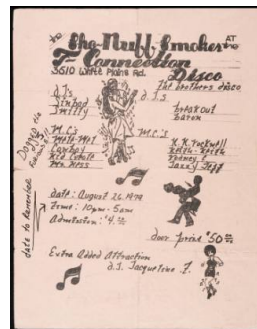 the Sho-Nuff Smoker AT the
T-Connection
3510 White Plains Rd.
Disco
The brothers disco
D.J.s
D.J.S
Sinbad
Smitty
breakout
baron
M.C's
M.C.'s
Cowboy
Kid Creole
K.K. Rockwell
Keith-Keith
Rodney C
Jazzy Jeff
date to Remember
date: August 26, 1979
time: 10pm - 5am
Admission: $4.00
door prize $50.00
Extra Added Attraction
d.J. Jacqueline F.